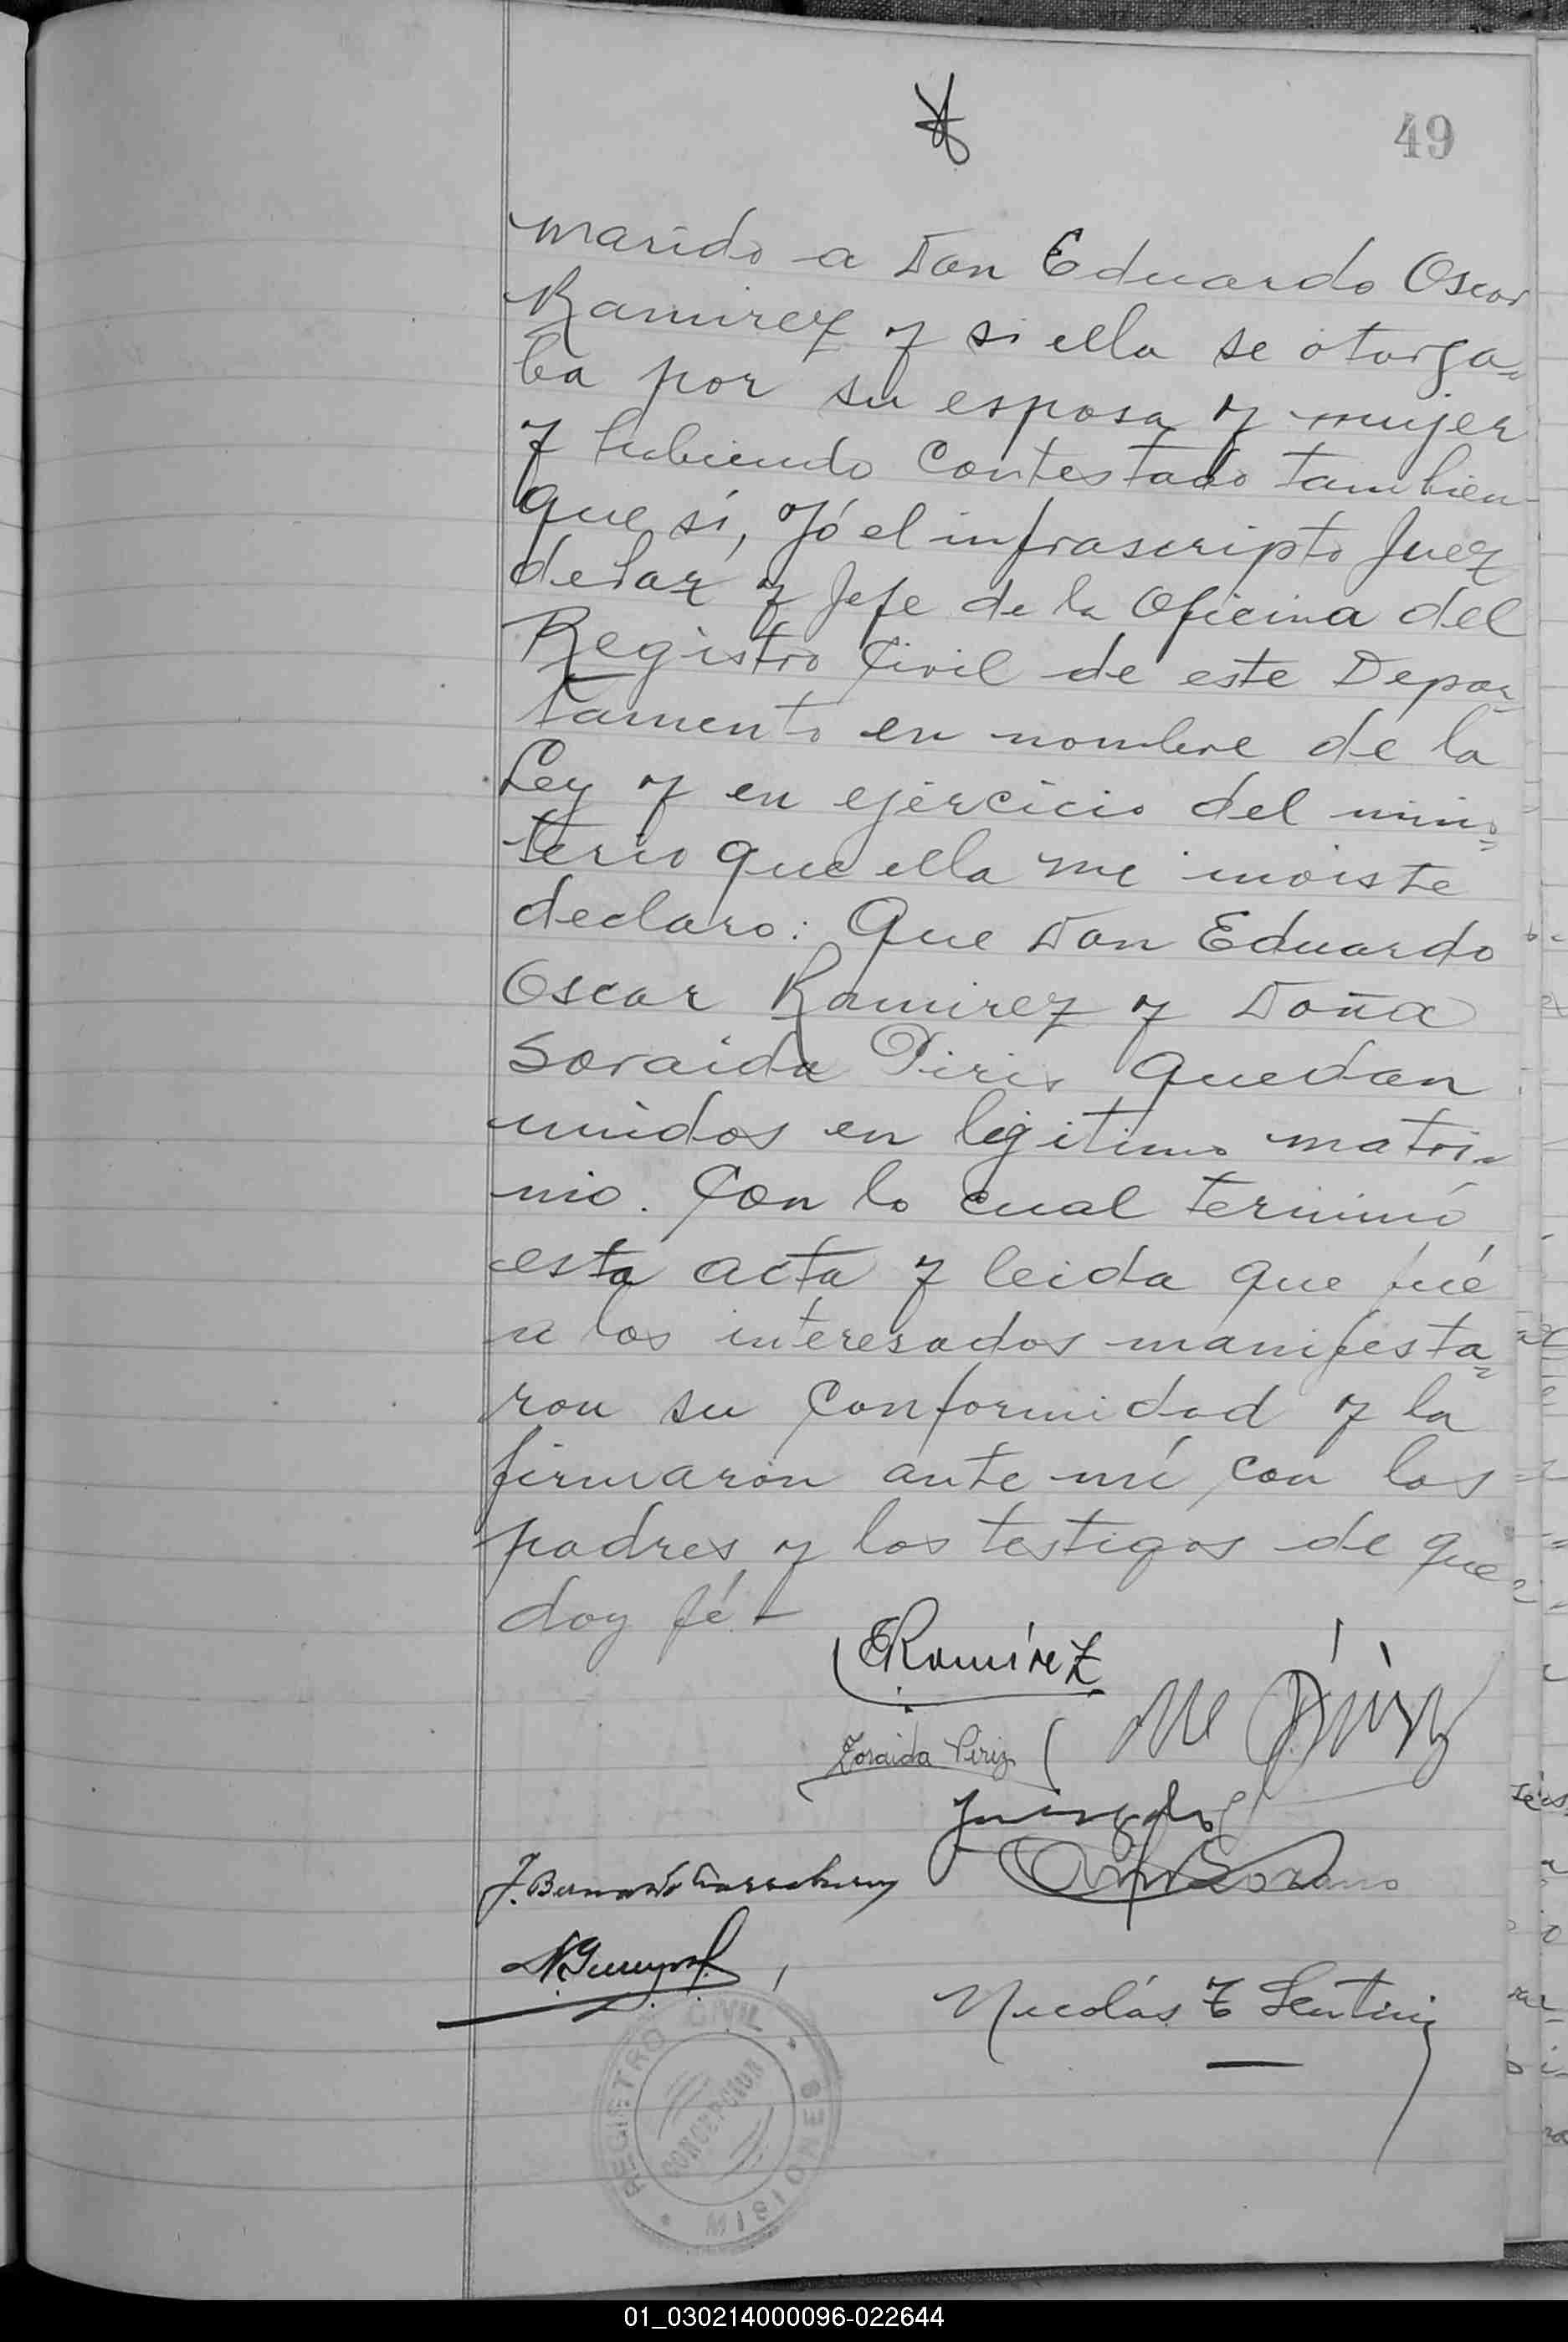 49
marido a Don Eduardo Oscar
Ramirez y si ella se otorga=
ba por su esposa y mujer
y hubiendo contestado tambien
que sí, Yó el infrascripto Juez
de Paz y Jefe de la Oficina del
Registro Civil de este Depar=
tamento en nombre de la
Ley y en ejercicio del minis=
terio que ella me inviste
declaro: Que Don Eduardo
Oscar Ramirez y Doña
Soraida Piris quedan
unidos en legitimo matri=
nio. Con lo cual terminó
esta acta y leida que fué
a los interesados manifesta=
ron su conformidad y la
firmaron ante mí con los
padres y los testigos de que
doy fé -
ERamírez
Zoraida Piriz
J. Bernardo
Nicolás
REGISTRO CIVIL
CONCEPCION
MISIONES
01_030214000096-022644